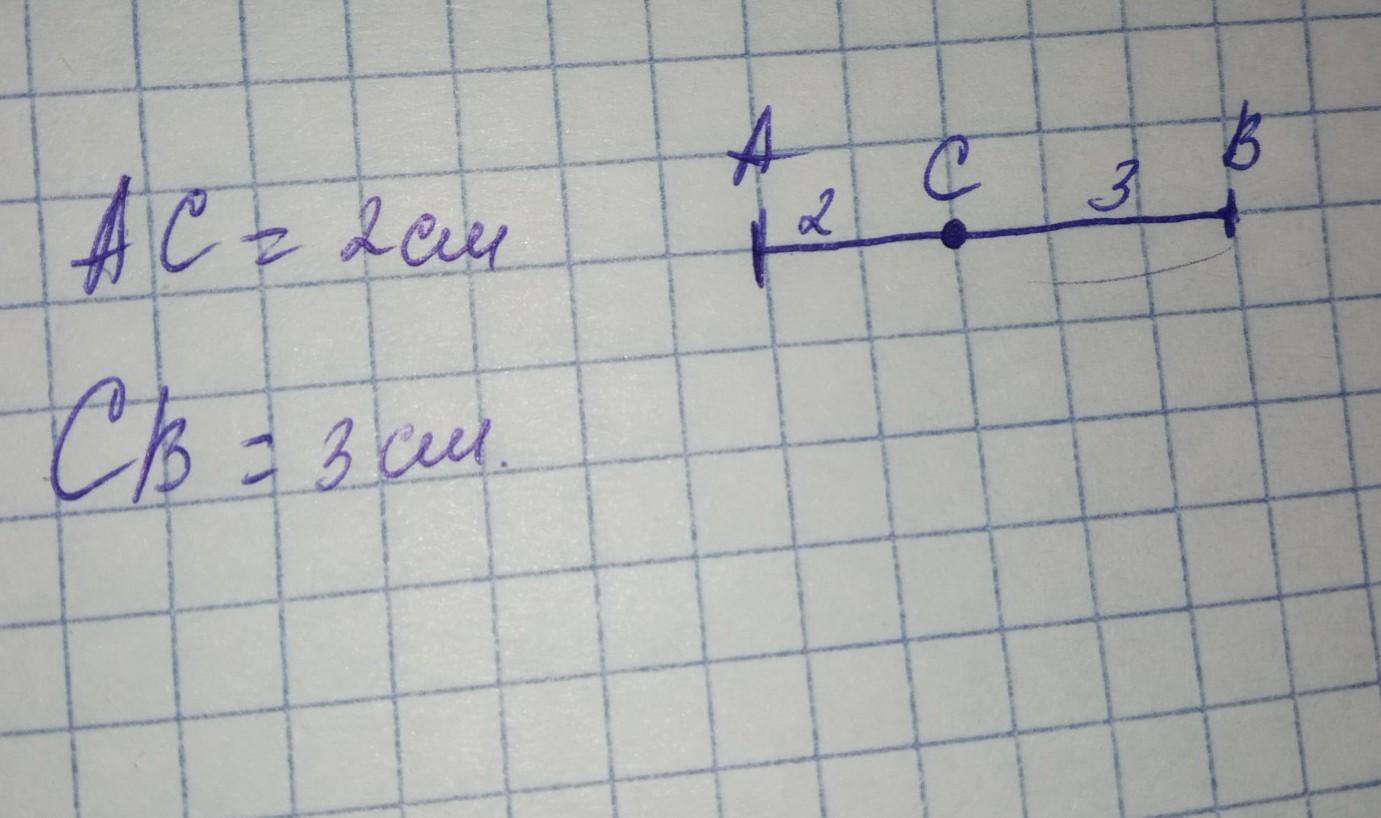 AC = 2 см
CB = 3 см.
A
C
B
2
3